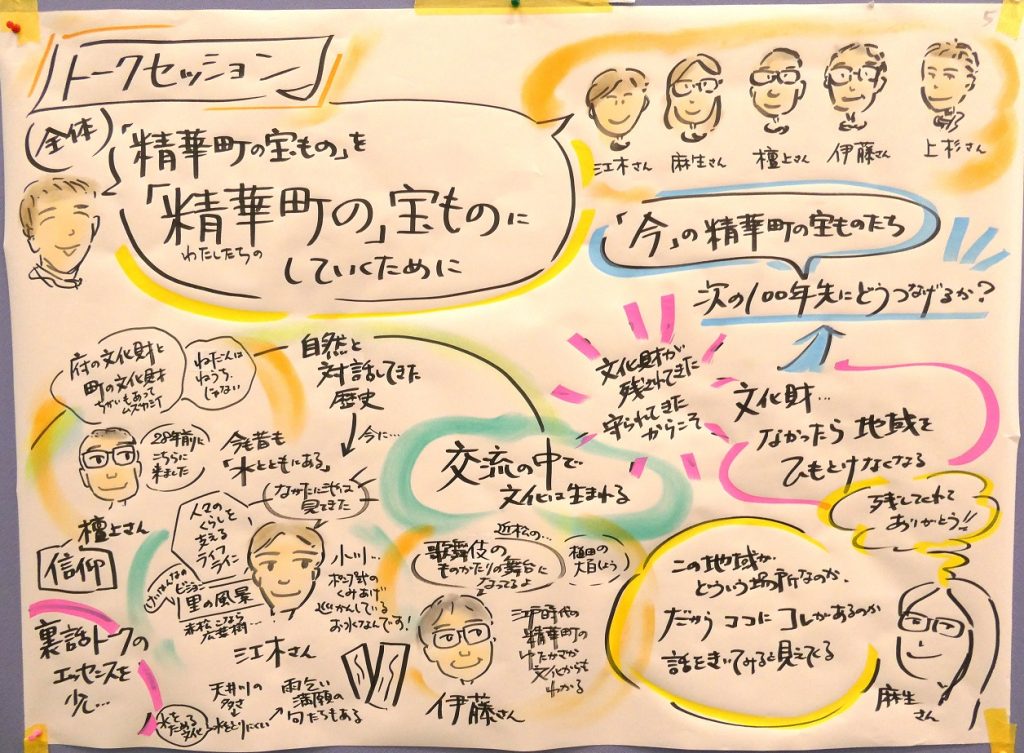 5
トークセッション
全体
「精華町の宝もの」を
「精華町の」宝ものに
わたしたちの
していくために
江木さん
麻生さん
檀上さん
伊藤さん
上杉さん
「今」の精華町の宝ものたち
次の100年先にどうつなげるか?
府の文化財と
町の文化財
ちがいもあって
ムズカシイ
ねだんは
ねうち
じゃない
自然と
対話してきた
歴史
今に…
28年前に
こちらに
来ました
今も昔も
「水とともにある」
檀上さん
交流の中で
文化は生まれる
文化財が
残されてきた
守られてきた
からこそ
文化財…
なかったら地域を
ひもとけなくなる
残してくれて
ありがとう!!
信仰
人々の
くらしを
支える
ライフ
ライン
見てきた
里の風景
広葉樹…
江木さん
小川…
くみあげ
お水なんです!
近松の…
歌舞伎の
ものがたりの舞台に
なってるよ
植田の
江戸時代の
精華町の
ゆたかさが
文化からも
わかる
伊藤さん
この地域が
どういう場所なのか、
だからココにコレがあるのか
話をきいてみると見えてくる
麻生
さん
裏話トークの
エッセンスを
少し…
水を
ためる
文化
天井川の
多さ
水をとりにくい
雨乞い
満願の
句たちもある